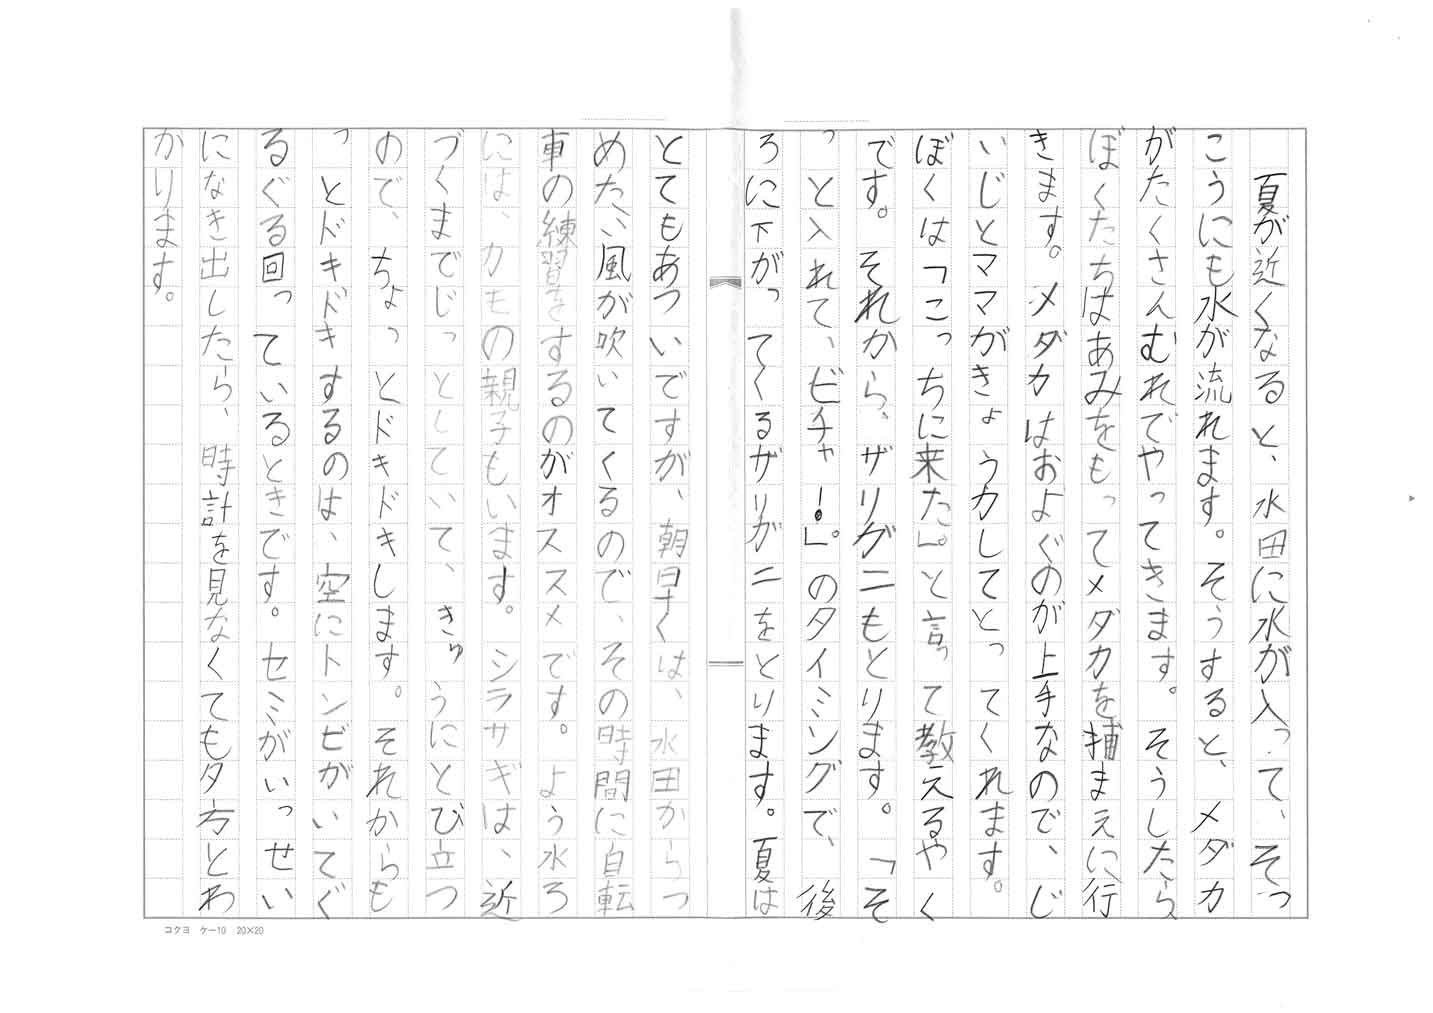 夏が近くなると、水田に水が入って、そっ
こうにも水が流れます。そうすると、メダカ
がたくさんむれでやってきます。そうしたら
ぼくたちはあみをもってメダカを捕まえに行
きます。メダカはおよぐのが上手なので、じ
いじとママがきょう力してとってくれます。
ぼくは「こっちに来た」。と言って教えるやく
です。それから、ザリガニもとります。「そ
っと入れて、ビチャ!」。のタイミングで、後
ろに下がってくるザリガニをとります。夏は
とてもあついですが、朝早くは、水田からつ
めたい風が吹いてくるので、その時間に自転
車の練習をするのがオススメです。よう水ろ
には、カモの親子もいます。シラサギは、近
づくまでじっとしていて、きゅうにとび立つ
ので、ちょっとドキドキします。それからも
っとドキドキするのは、空にトンビがいてぐ
るぐる回っているときです。セミがいっせい
になき出したら、時計を見なくても夕方とわ
かります。
コクヨ ケー10 20×20